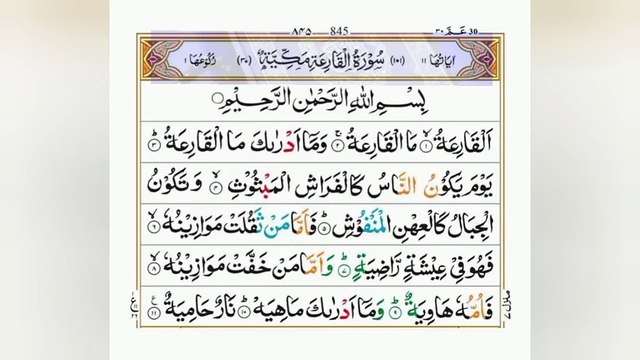 ٨٤٥ 845 عـمّ ٣٠ 30
اٰيَاتُهَا ١١ (١٠١) سُوْرَةُ الْقَارِعَةِ مَكِّيَّةٌ (٣٠) رُكُوْعُهَا ١
بِسْمِ اللّٰهِ الرَّحْمٰنِ الرَّحِيْمِ
اَلْقَارِعَةُ ۙ﴿١﴾ مَا الْقَارِعَةُ ۚ﴿٢﴾ وَمَاۤ اَدْرٰىكَ مَا الْقَارِعَةُ ؕ﴿٣﴾
يَوْمَ يَكُوْنُ النَّاسُ كَالْفَرَاشِ الْمَبْثُوْثِ ۙ﴿٤﴾ وَتَكُوْنُ
الْجِبَالُ كَالْعِهْنِ الْمَنْفُوْشِ ؕ﴿٥﴾ فَاَمَّا مَنْ ثَقُلَتْ مَوَازِيْنُهٗ ۙ﴿٦﴾
فَهُوَ فِيْ عِيْشَةٍ رَّاضِيَةٍ ؕ﴿٧﴾ وَاَمَّا مَنْ خَفَّتْ مَوَازِيْنُهٗ ۙ﴿٨﴾
فَاُمُّهٗ هَاوِيَةٌ ؕ﴿٩﴾ وَمَاۤ اَدْرٰىكَ مَا هِيَهْ ؕ﴿١٠﴾ نَارٌ حَامِيَةٌ ﴿١١﴾
منزل ٧